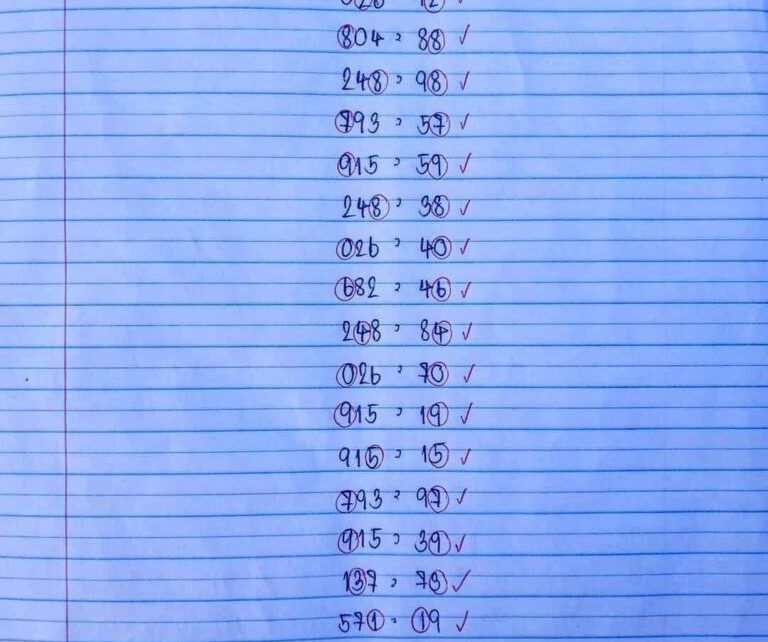 804 = 88 ✓
248 = 98 ✓
793 = 57 ✓
915 = 59 ✓
248 = 38 ✓
026 = 40 ✓
682 = 46 ✓
248 = 84 ✓
026 = 70 ✓
915 = 19 ✓
915 = 15 ✓
793 = 97 ✓
915 = 39 ✓
137 = 73 ✓
571 = 19 ✓